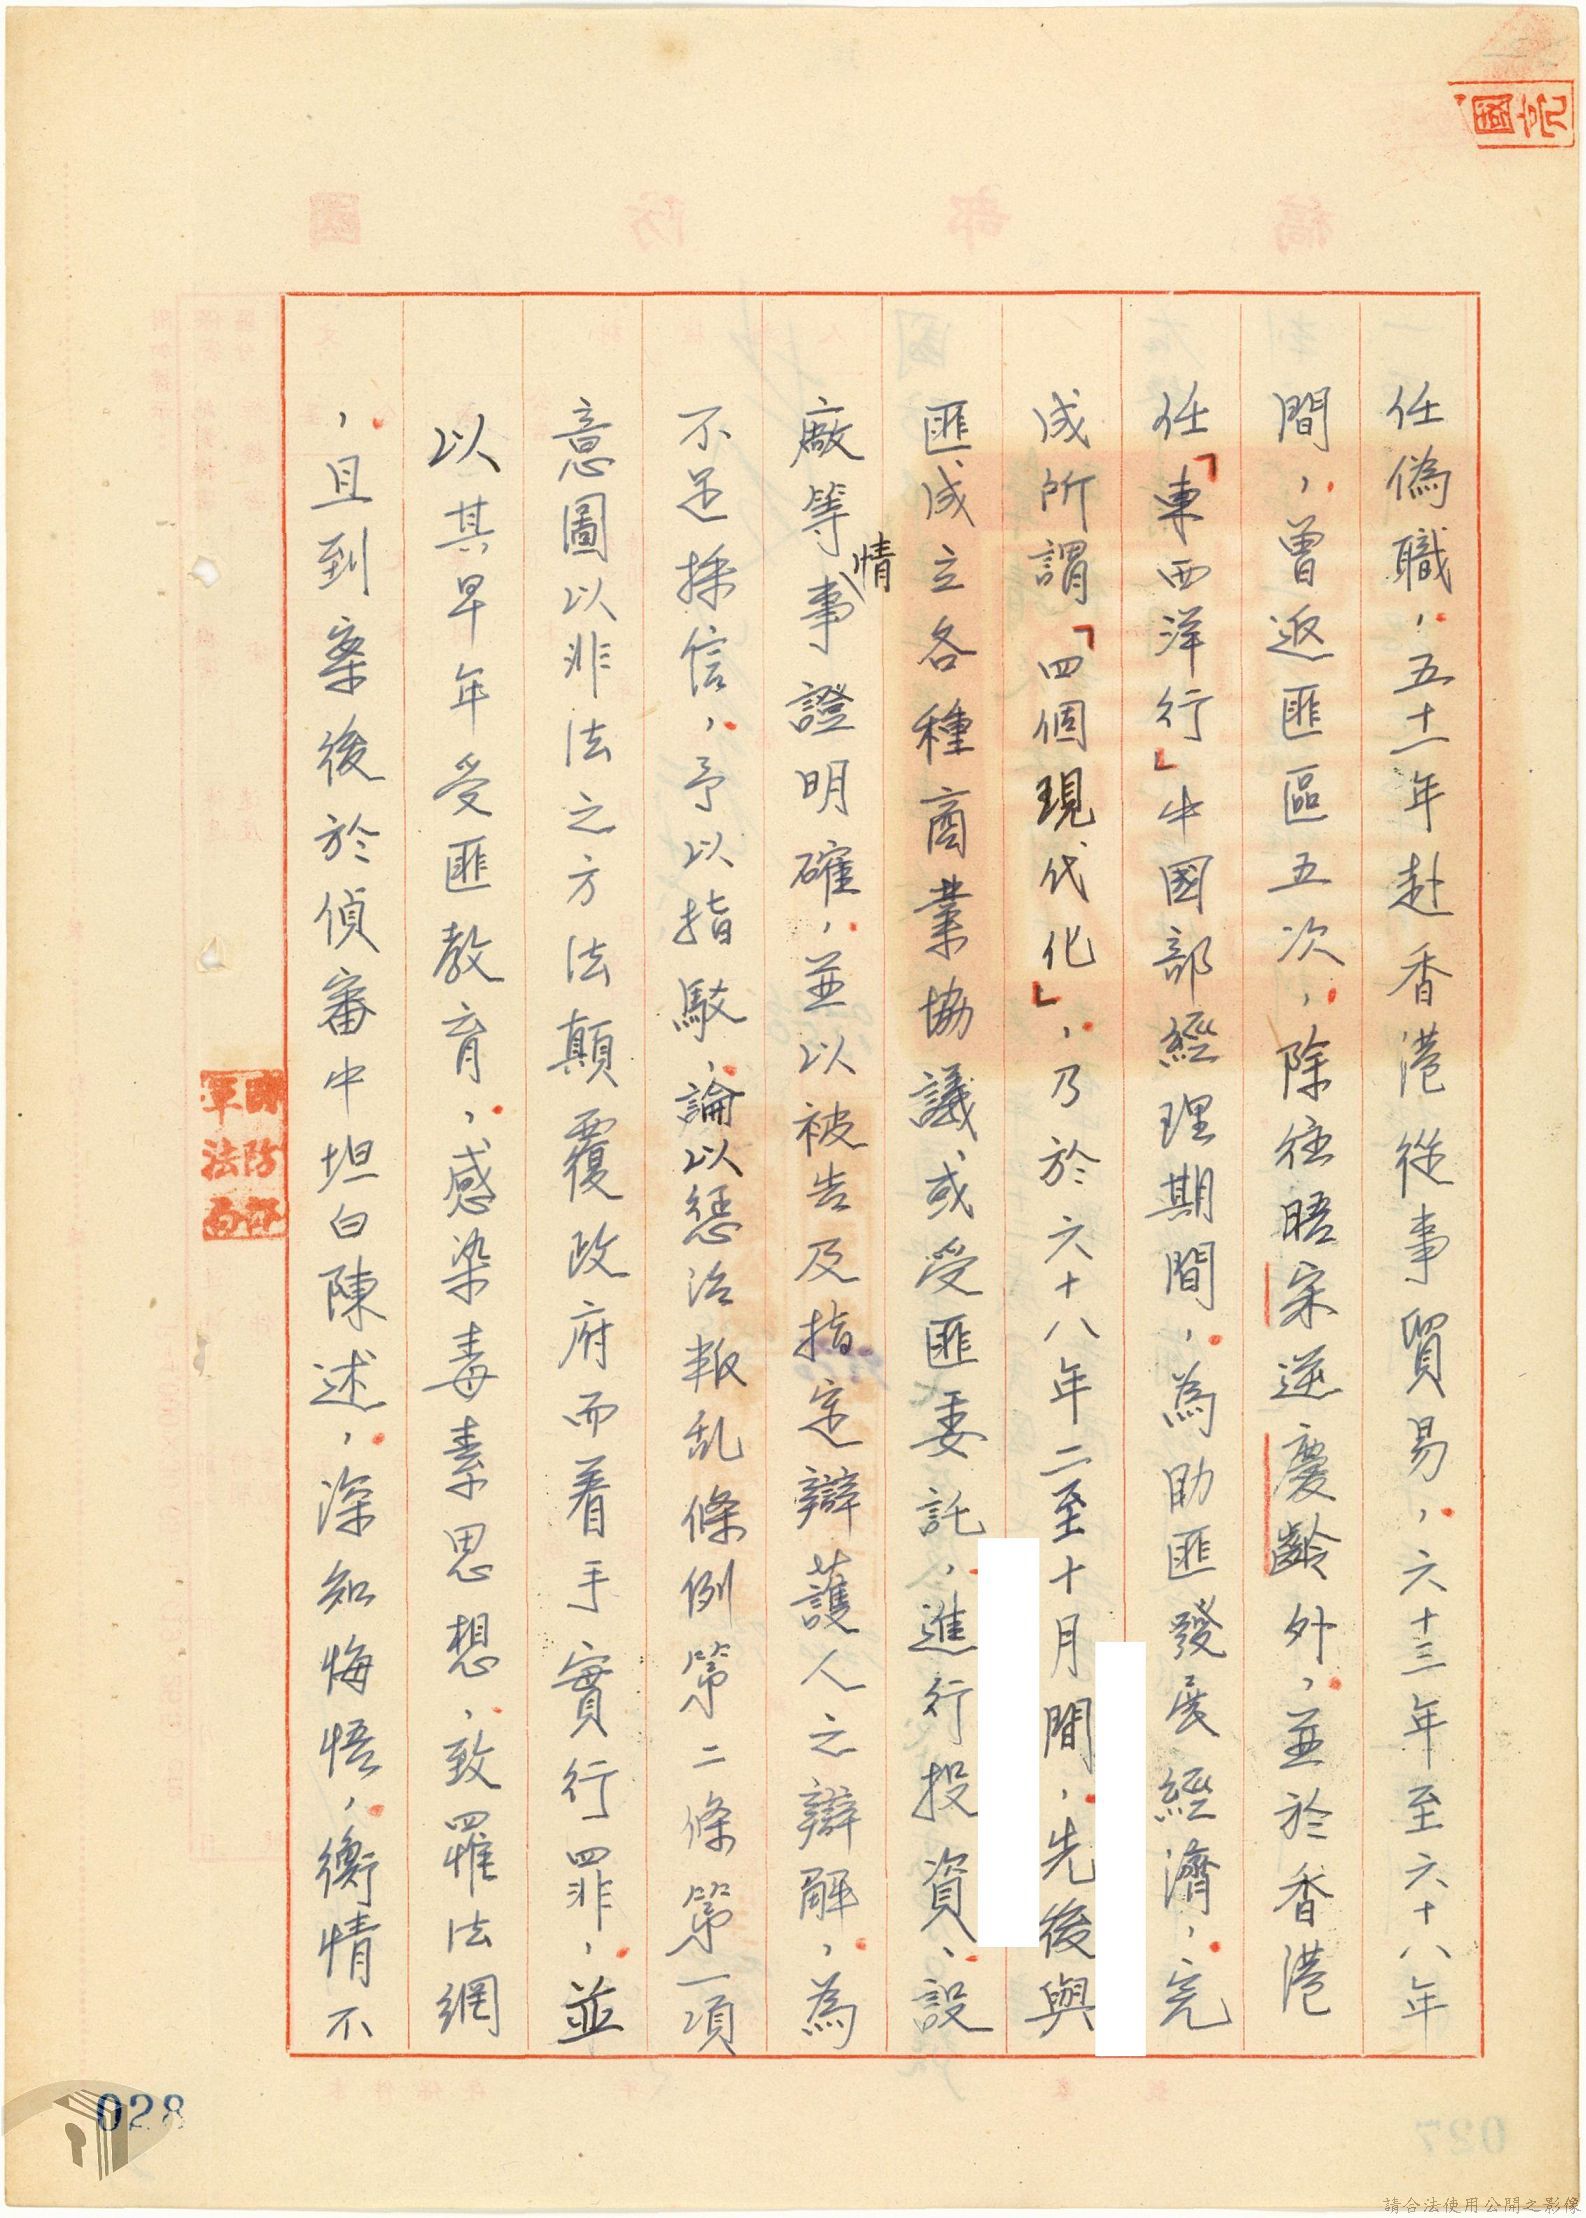 任偽職，五十一年赴香港從事貿易，六十三年至六十八年
間，曾返匪區五次，除往晤宋逆慶齡外，並於香港
任「東西洋行」中國部經理期間，為助匪發展經濟，完
成所謂「四個現代化」，乃於六十八年二至十月間，先後與
匪成立各種商業協議或受匪委託，進行投資、設
廠等事情證明確，並以被告及指定辯護人之辯解，為
不足採信，予以指駁，論以懲治叛乱條例第二條第一項
意圖以非法之方法顛覆政府而着手實行罪，並
以其早年受匪教育，感染毒素思想，致罹法網
，且到案後於偵審中坦白陳述，深知悔悟，衡情不
國防部
軍法局
028
請合法使用公開之影像